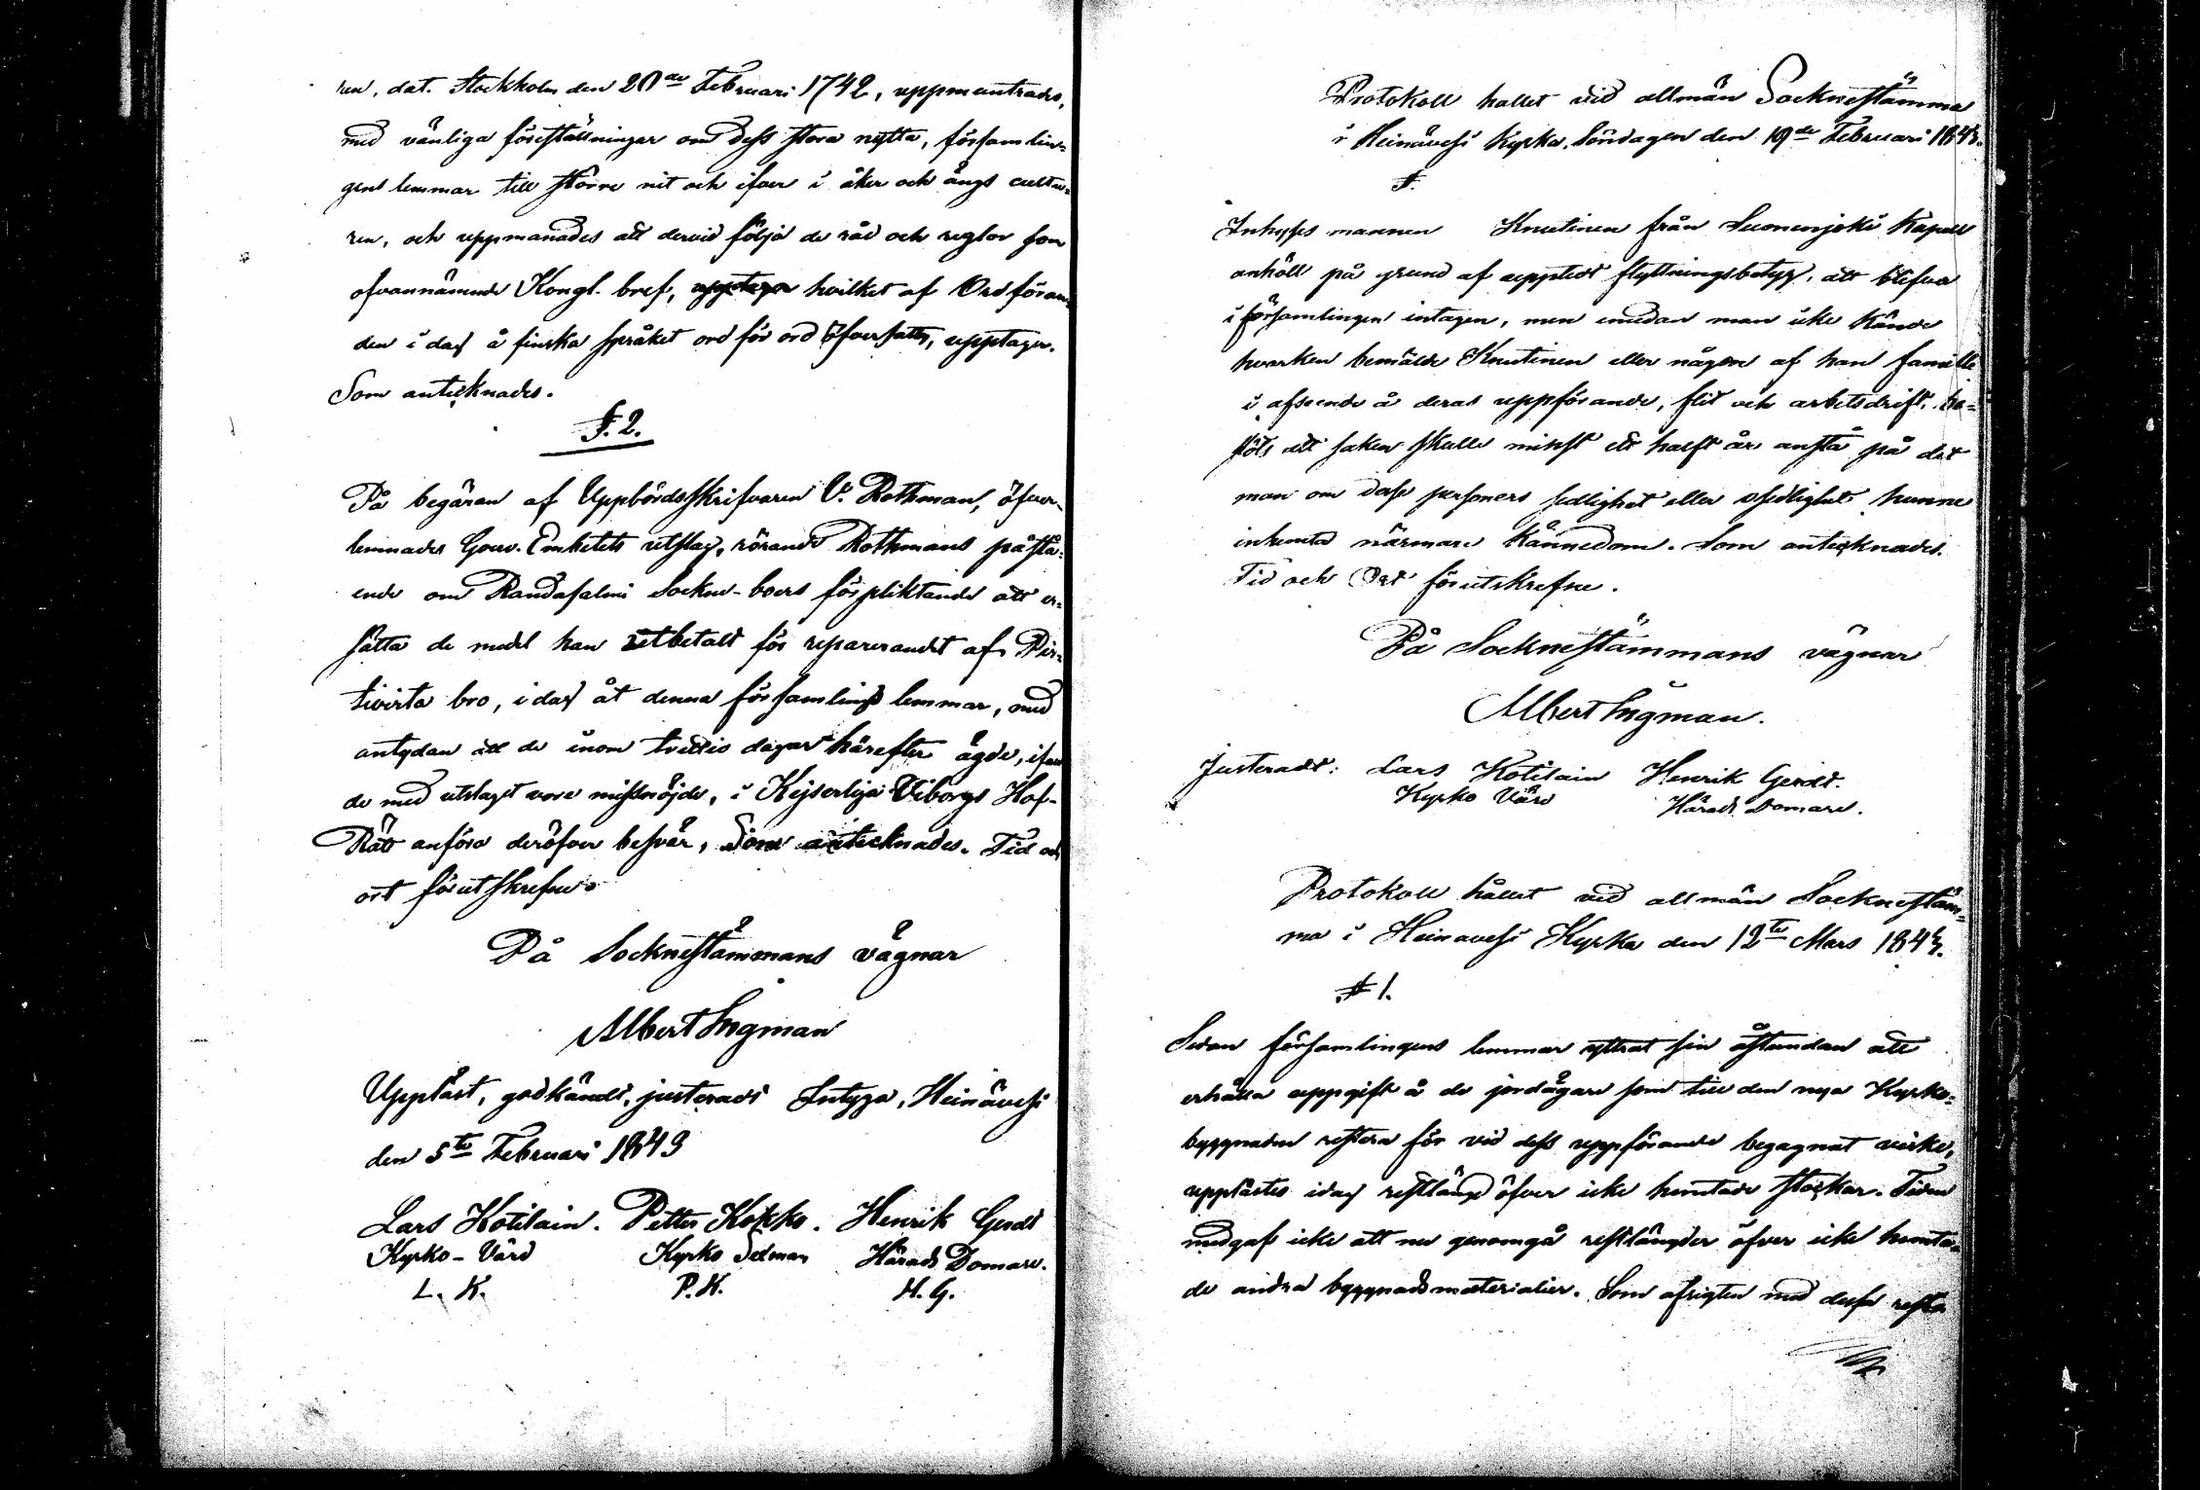 ren, dat. Stockholm den 20de Februari 1742, uppmuntrades,
med vänliga föreställningar om dess stora nytta, församlin=
gens lemmar till större nit och ifver i åker och ängs cultu=
ren, och uppmanades att dervid följa de råd och reglor som
ofvannämnde Kongl. bref, hvilket af Ordföran=
den i dag å finska språket ord för ord öfversattes, upptager.
Som antecknades.
§. 2.
På begäran af Uppbördsskrifvaren V. Rothman, öfver-
lemnades Gouv. Embetets utslag, rörande Rothmans påstå=
ende om Randasalmi Socken-boers förpliktande att er=
sätta de medel han utbetalt för reparerandet af Pir=
tivirta bro, i dag åt denna församlings lemmar, med
antydan att de inom trettio dagar härefter ägde, ifall
de med utslaget vore missnöjde, i Kejserliga Viborgs Hof-
Rätt anföra deröfver besvär, Som antecknades. Tid och
ort förutskrefne.
På Socknestämmans vägnar
Albert Ingman
Uppläst, godkändt, justeradt Intyga, Heinävesi
den 5te Februari 1843
Lars Kotilain. Petter Kokko. Henrik Gerdt
Kyrko-Värd Kyrko Sexman Härads Domare.
L. K. P. K. H. G.
Protokoll hållet vid allmän Sockneståmma
i Heinävesi Kyrka Söndagen den 19de Februari 1843.
§.
Inhyses mannen Knutinen från Suonenjoki Kapell
anhöll på grund af uppvist flyttningsbetyg, att blifva
i församlingen intagen, men emedan man icke kände
hvarken bemälde Knutinen eller någon af hans familie
i afseende å deras uppförande, flit och arbetsdrift, be=
slöts att saken skulle minst ett halft år anstå på det
man om desse personers sedlighet eller osedlighet kunne
inhemta närmare kännedom. Som antecknades.
Tid och Ort förutskrefne.
På Sockneståmmans vägnar
Albert Ingman.
Justeradt: Lars Kotilain Henrik Gerdt.
Kyrko Värd Härads Domare.
Protokoll hållet vid allmän Socknestäm=
ma i Heinävesi Kyrka den 12te Mars 1843.
§ 1.
Sedan församlingens lemmar yttrat sin åstundan att
erhålla uppgift å de jordägare som till den nya Kyrko=
byggnaden restera för vid dess uppförande begagnat virke,
upplästes idag restlängd öfver icke hemtade stockar. Tiden
medgaf icke att nu genomgå restlängder öfver icke hemta=
de andra byggnadsmaterialier. Som afsigten med dessa